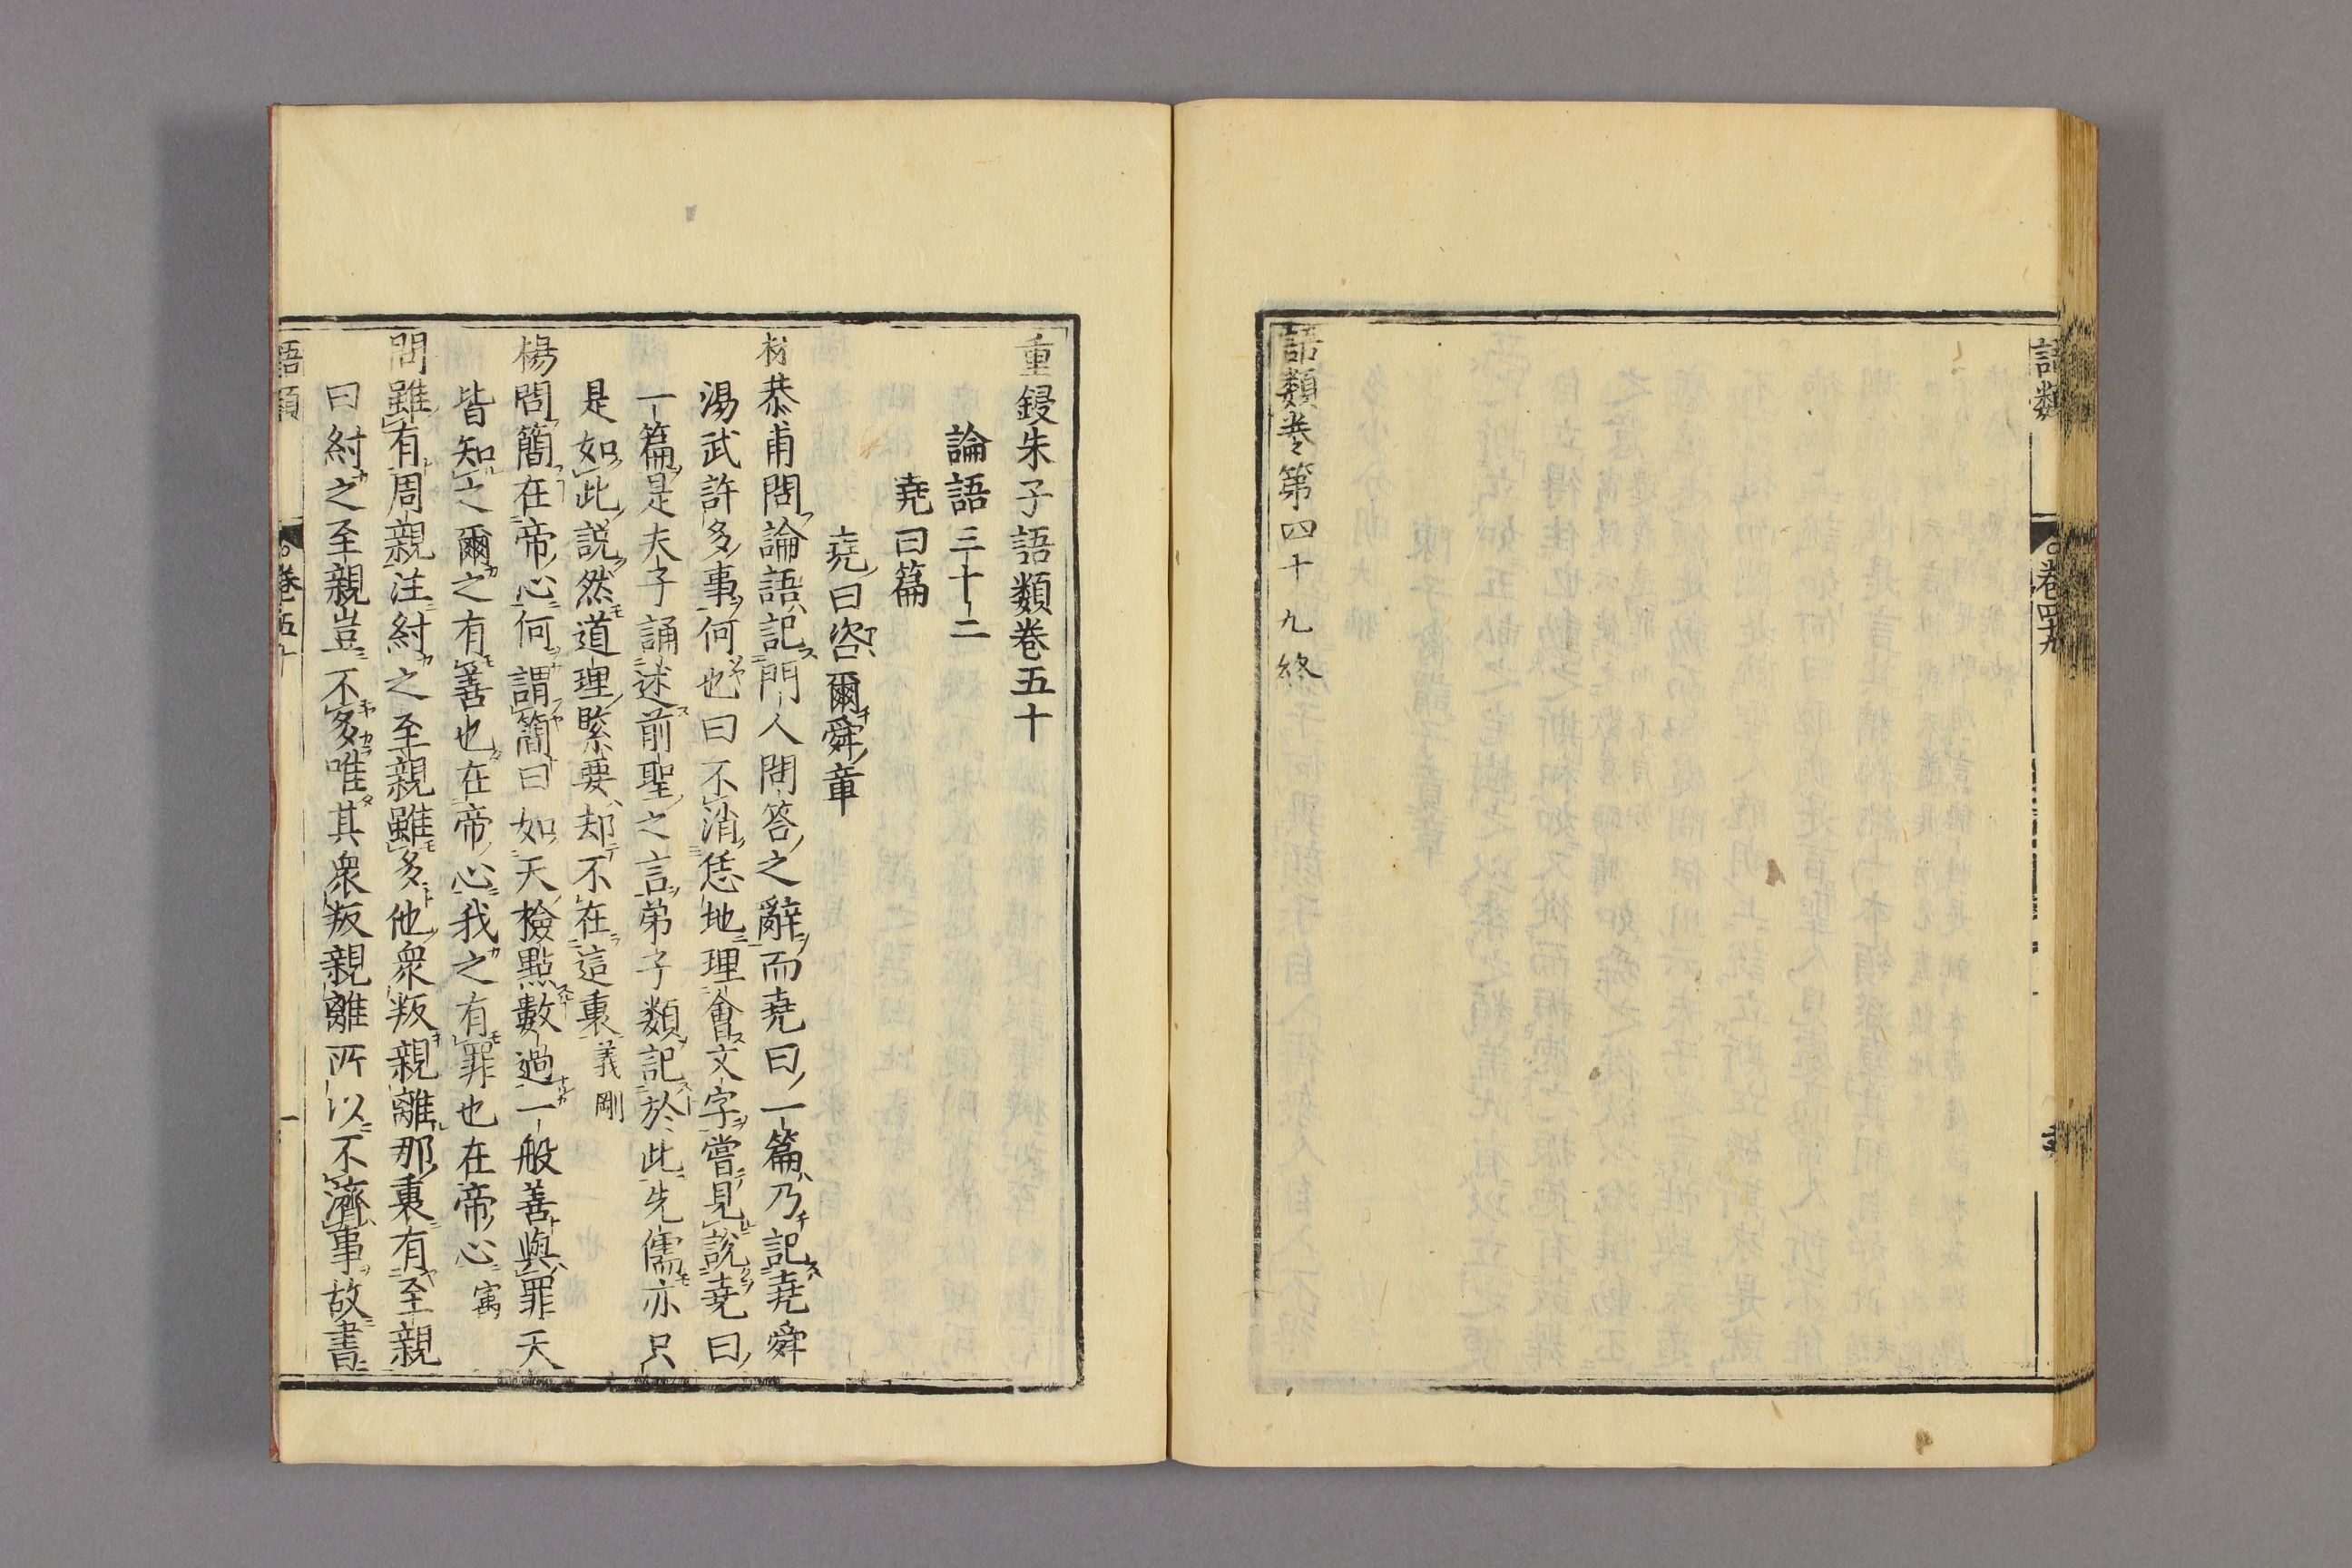 語類
卷四十九
語類卷第四十九終
重鋟朱子語類卷五十
論語三十二
堯曰篇
堯曰咨爾舜章
林恭甫問論語記門人問答之辭而堯曰一篇乃記堯舜
湯武許多事何也曰不消恁地理會文字嘗見說堯曰
一篇是夫子誦述前聖之言弟子類記於此先儒亦只
是如此說然道理緊要却不在這裏義剛
楊問簡在帝心何謂簡曰如天檢點數過一般善與罪天
皆知之爾之有善也在帝心我之有罪也在帝心寓
問雖有周親注紂之至親雖多他衆叛親離那裏有至親
曰紂之至親豈不多唯其衆叛親離所以不濟事故書
語類
卷五十
一